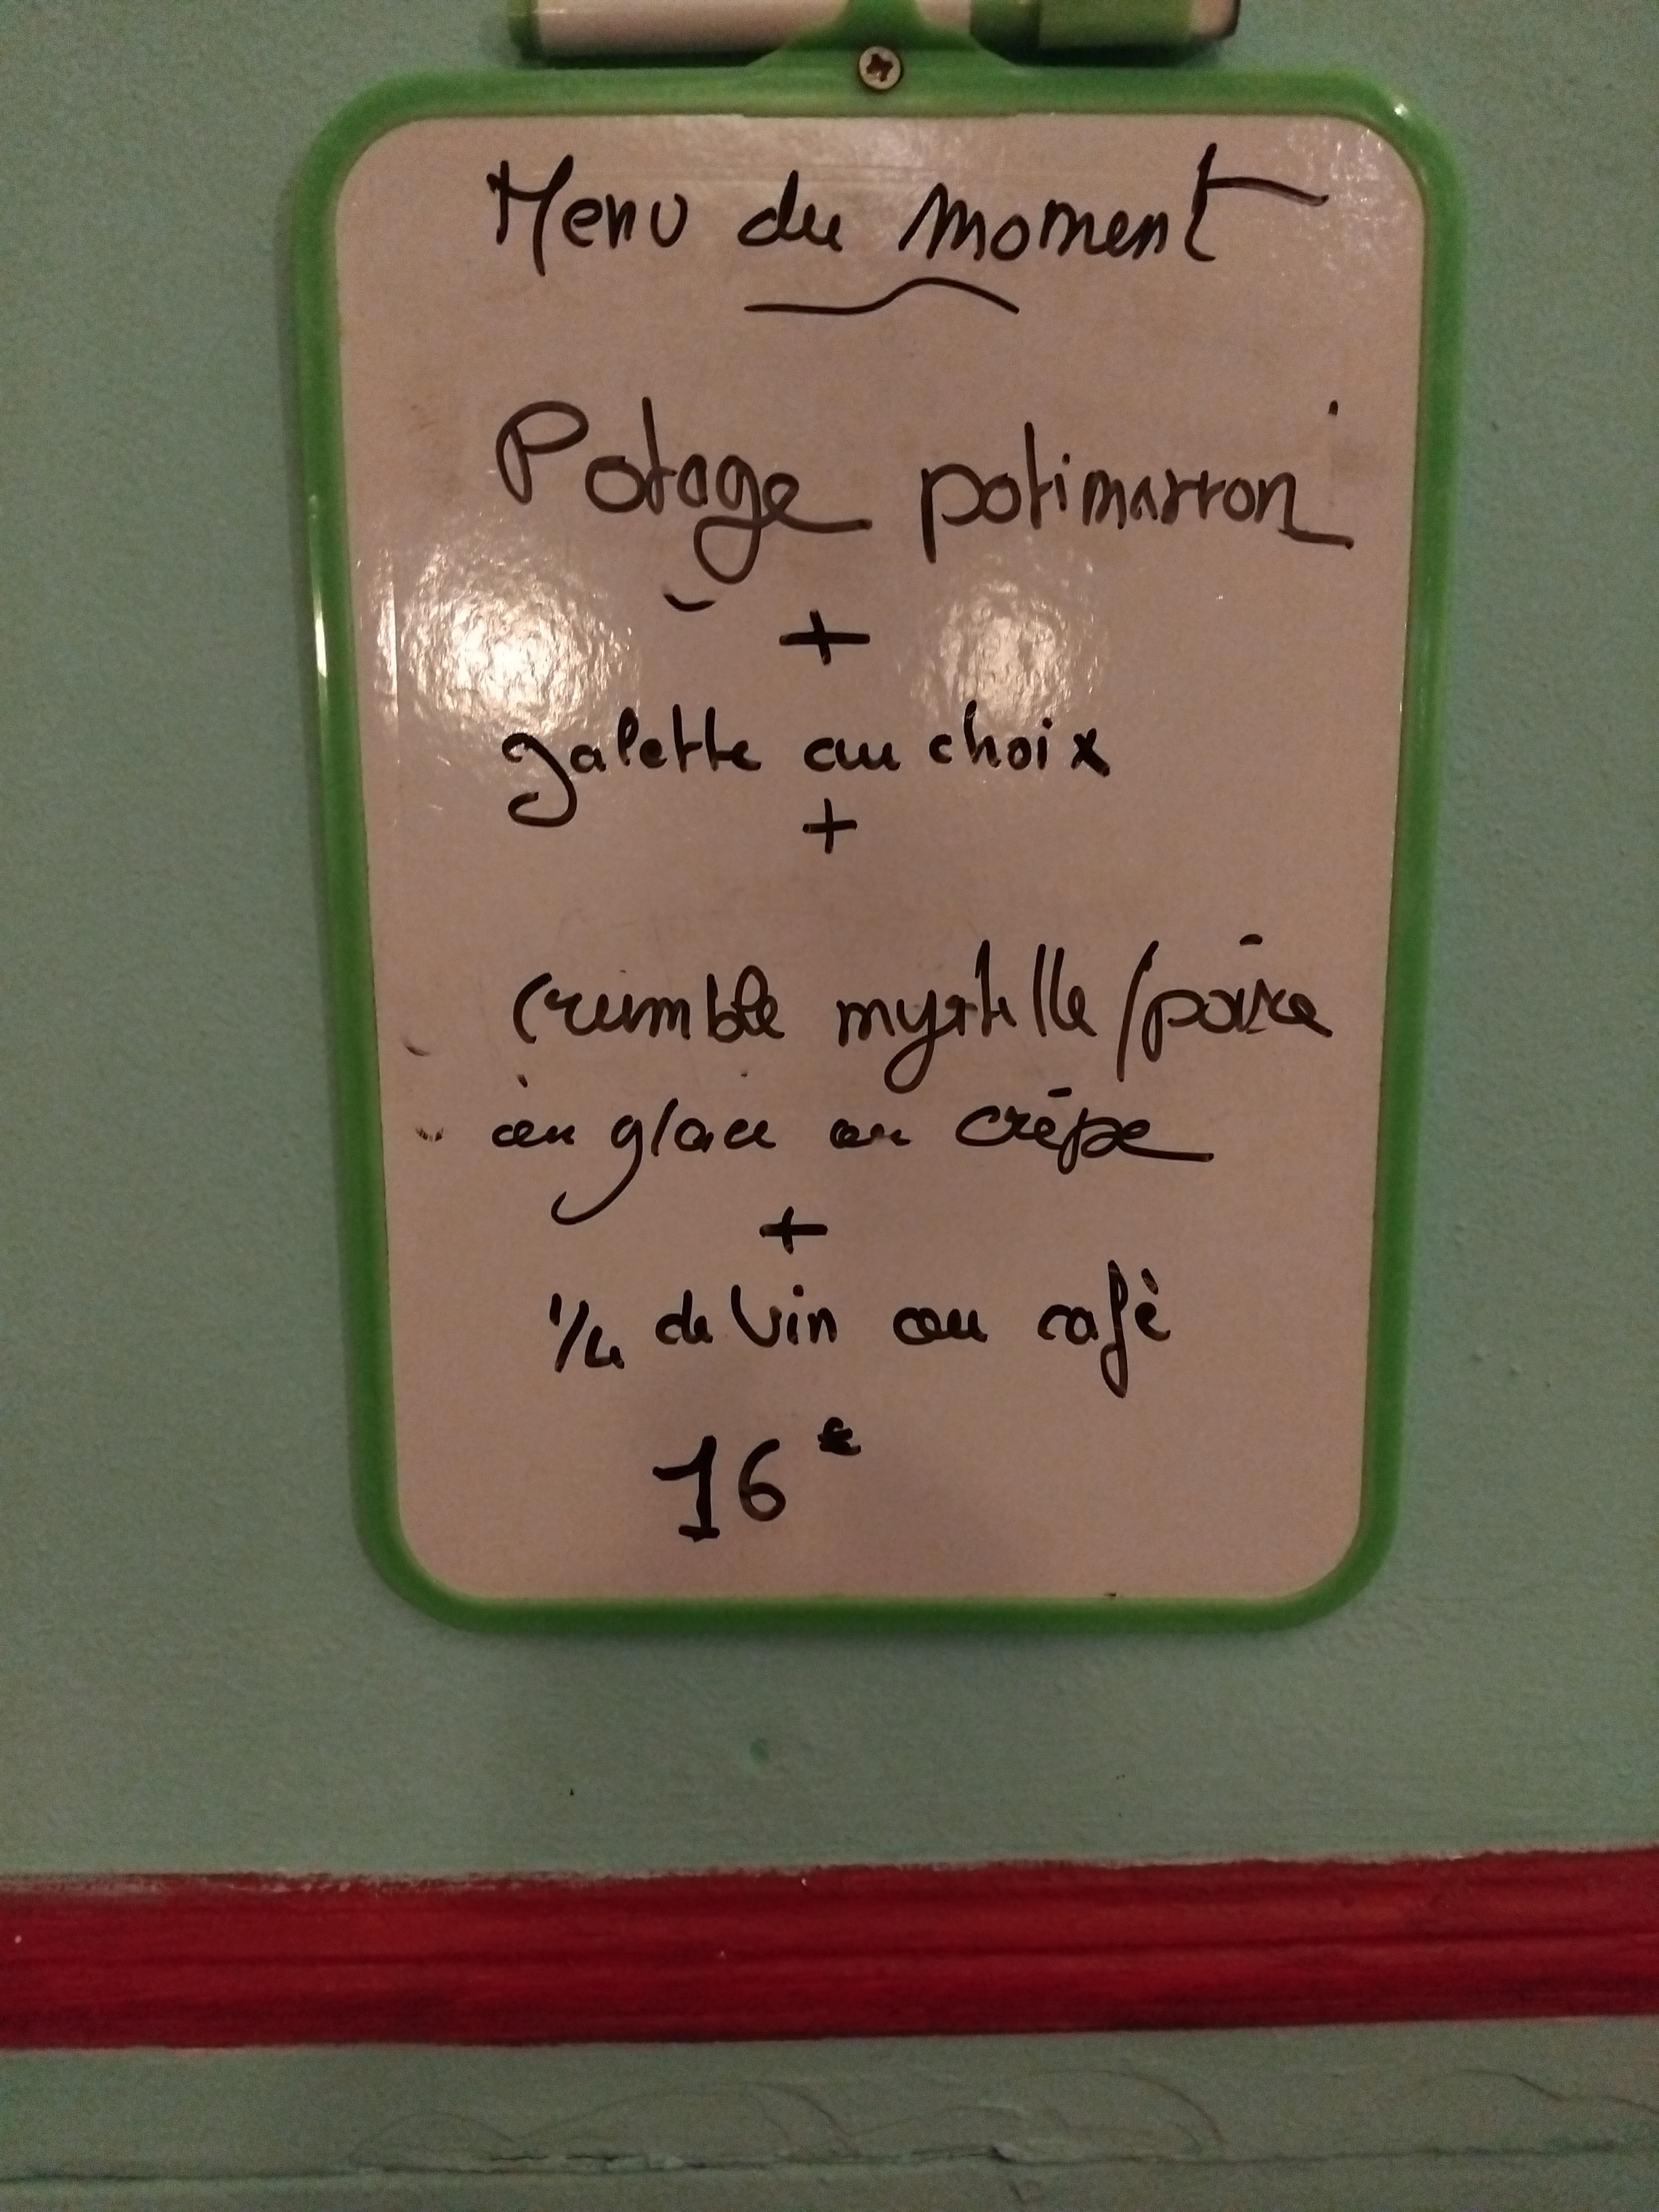 Menu du moment
Potage potimarron
+
galette au choix
+
crumble myrtille/poire
ou glace ou crêpe
+
1/4 de vin ou café
16€